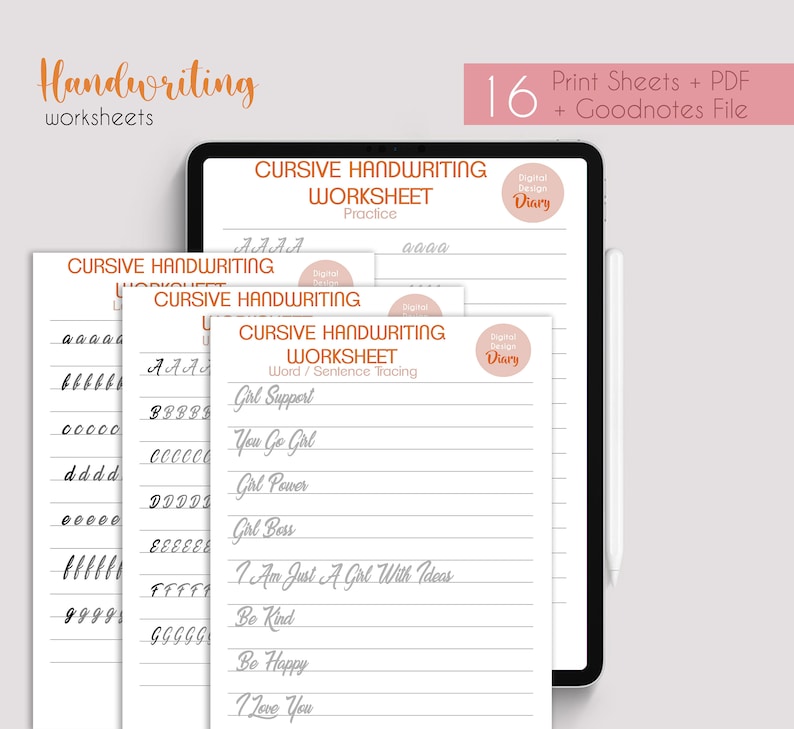 Handwriting
worksheets
16 Print Sheets + PDF
+ Goodnotes File
CURSIVE HANDWRITING
WORKSHEET
Practice
Digital
Design
Diary
AAAA aaaa
CURSIVE HANDWRITING
Digital
a a a a a
c c c c c
d d d d
e e e e e
f f f f f f
g g g g g
CURSIVE HANDWRITING
Digital
A A A A
B B B B B
C C C C C C
D D D D D
E E E E E E
F F F F F F
G G G G G G
CURSIVE HANDWRITING
WORKSHEET
Word / Sentence Tracing
Digital
Design
Diary
Girl Support
You Go Girl
Girl Power
Girl Boss
I Am Just A Girl With Ideas
Be Kind
Be Happy
I Love You